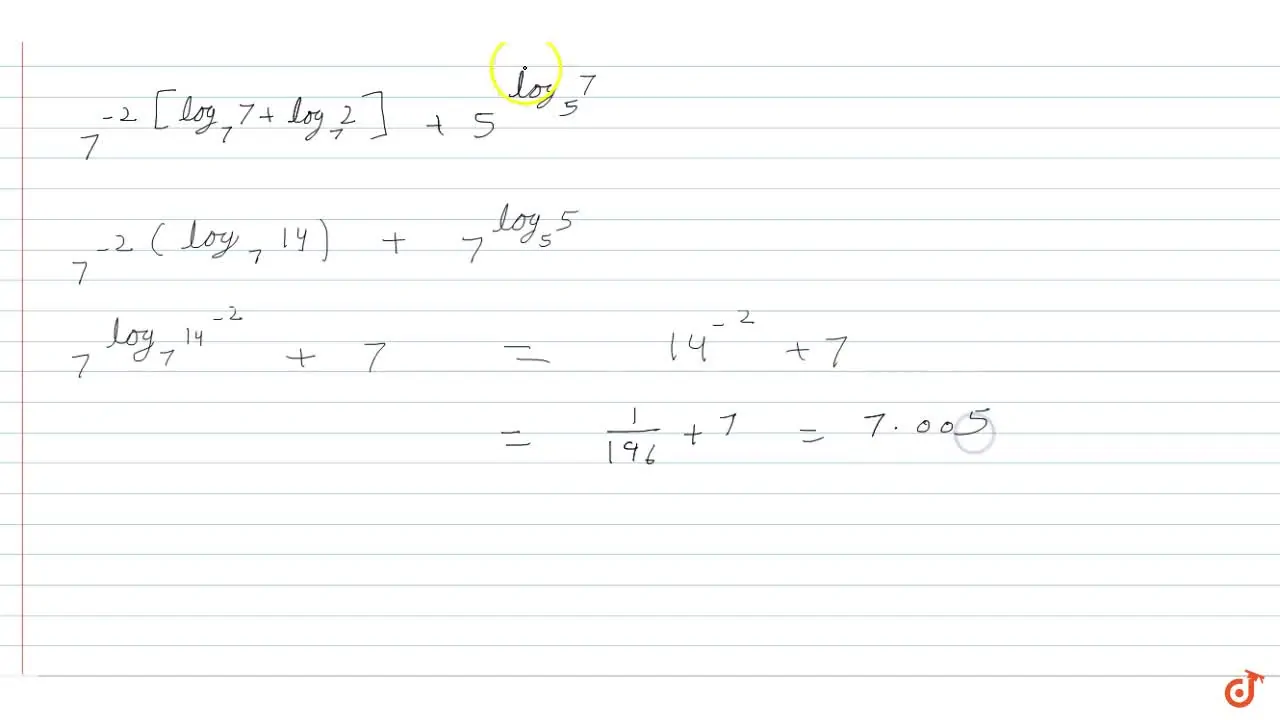 7^{-2 [log_7 7 + log_7 2]} + 5^{log_5 7}
7^{-2 (log_7 14)} + 7^{log_5 5}
7^{log_7 14^{-2}} + 7 = 14^{-2} + 7
= 1/196 + 7 = 7.005